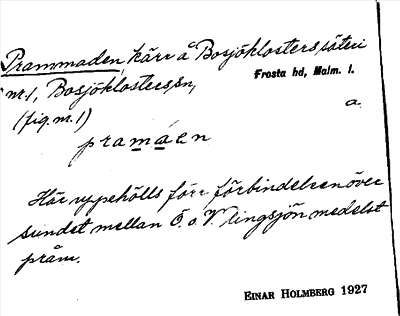 Prammaden, kärr å Bosjöklosters säteri
nr. 1, Bosjöklosters sn,
Frosta hd, Malm. l.
(fig. nr. 1)
a.
pramaen
Här uppehölls förr förbindelsen över
sundet mellan Ö. o V. Ringsjön medelst
pråm.
EINAR HOLMBERG 1927